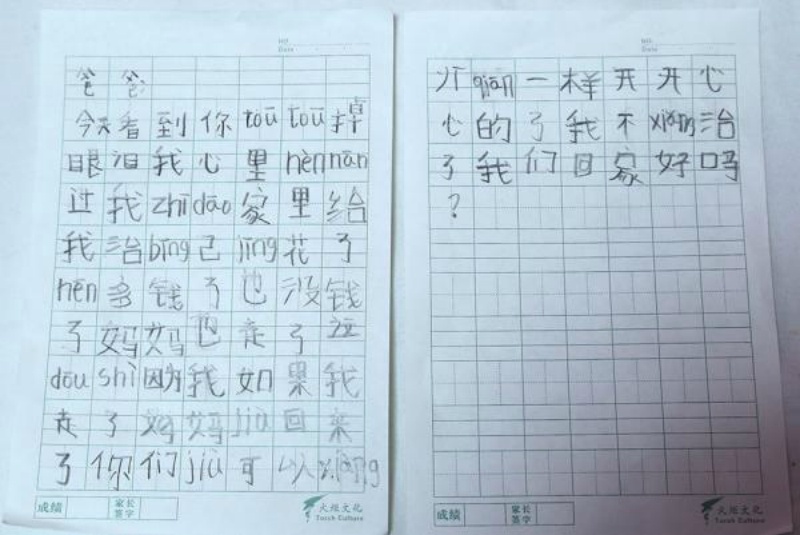 爸爸
今天看到你tōu tōu掉
眼泪我心里hèn nān
过我zhī dāo家里给
我治bìng己jīng花了
hēn多钱了也没钱
了妈妈也走了这
dōu shì因为我如果我
走了妈妈jiù回来
了你们jiù可以xiàng
成绩 家长签字 火炬文化 Torch Culture
NO.
Date
以qián一样开开心
心的了我不xiǎng治
了我们回家好吗
?
成绩 家长签字 火炬文化 Torch Culture